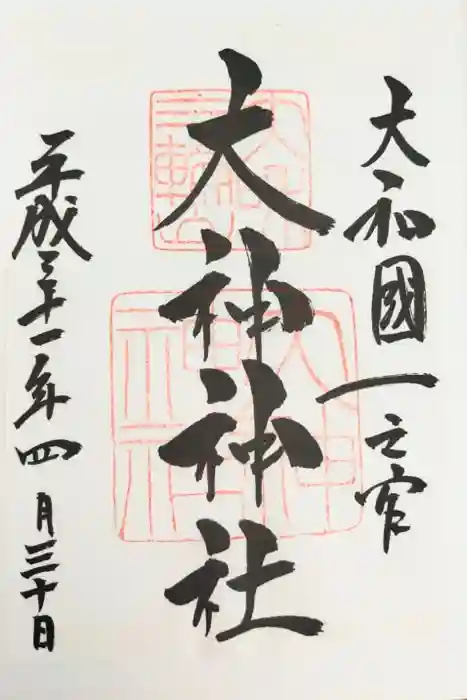 大和國一之宮
大神神社
平成三十一年四月三十日